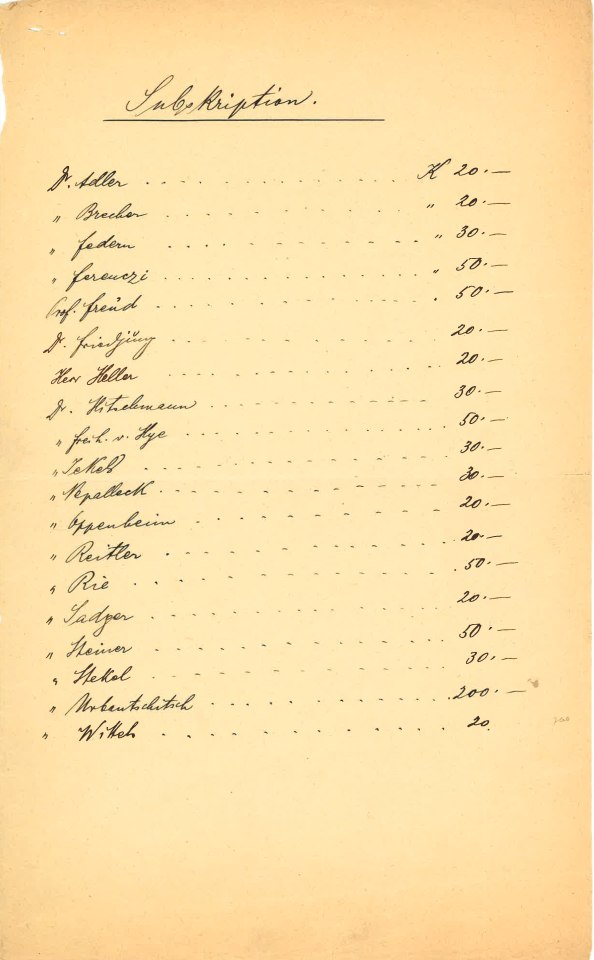 Subskription.
Dr. Adler . . . . . . . . . . . . K 20.—
" Brecher . . . . . . . . . . . . " 20.—
" Federn . . . . . . . . . . . . " 30.—
" Ferenczi . . . . . . . . . . . . " 50.—
Prof. Freud . . . . . . . . . . . . " 50.—
Dr. Friedjung . . . . . . . . . . . . 20.—
Herr Heller . . . . . . . . . . . . 20.—
Dr. Hitschmann . . . . . . . . . . . . 30.—
" Freih. v. Hye . . . . . . . . . . . . 50.—
" Jekels . . . . . . . . . . . . 30.—
" Nepalleck . . . . . . . . . . . . 30.—
" Oppenheim . . . . . . . . . . . . 20.—
" Reitler . . . . . . . . . . . . 20.—
" Rie . . . . . . . . . . . . 50.—
" Sadger . . . . . . . . . . . . 20.—
" Steiner . . . . . . . . . . . . 50.—
" Stekel . . . . . . . . . . . . 30.—
" Urbantschitsch . . . . . . . . . . . . 200.—
" Wittels . . . . . . . . . . . . 20.